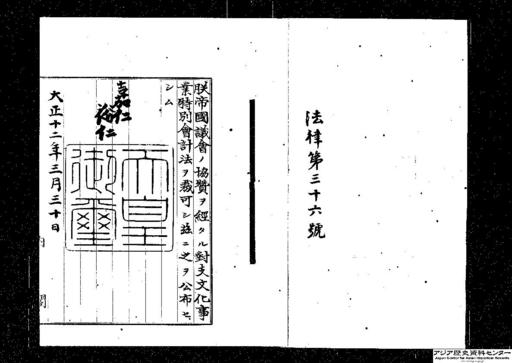 法律第三十六號
朕帝國議會ノ協贊ヲ經タル對支文化事
業特別會計法ヲ裁可シ茲ニ之ヲ公布セ
シム
嘉仁
裕仁
天皇
御璽
大正十二年三月三十日
アジア歴史資料センター
Japan Center for Asian Historical Records